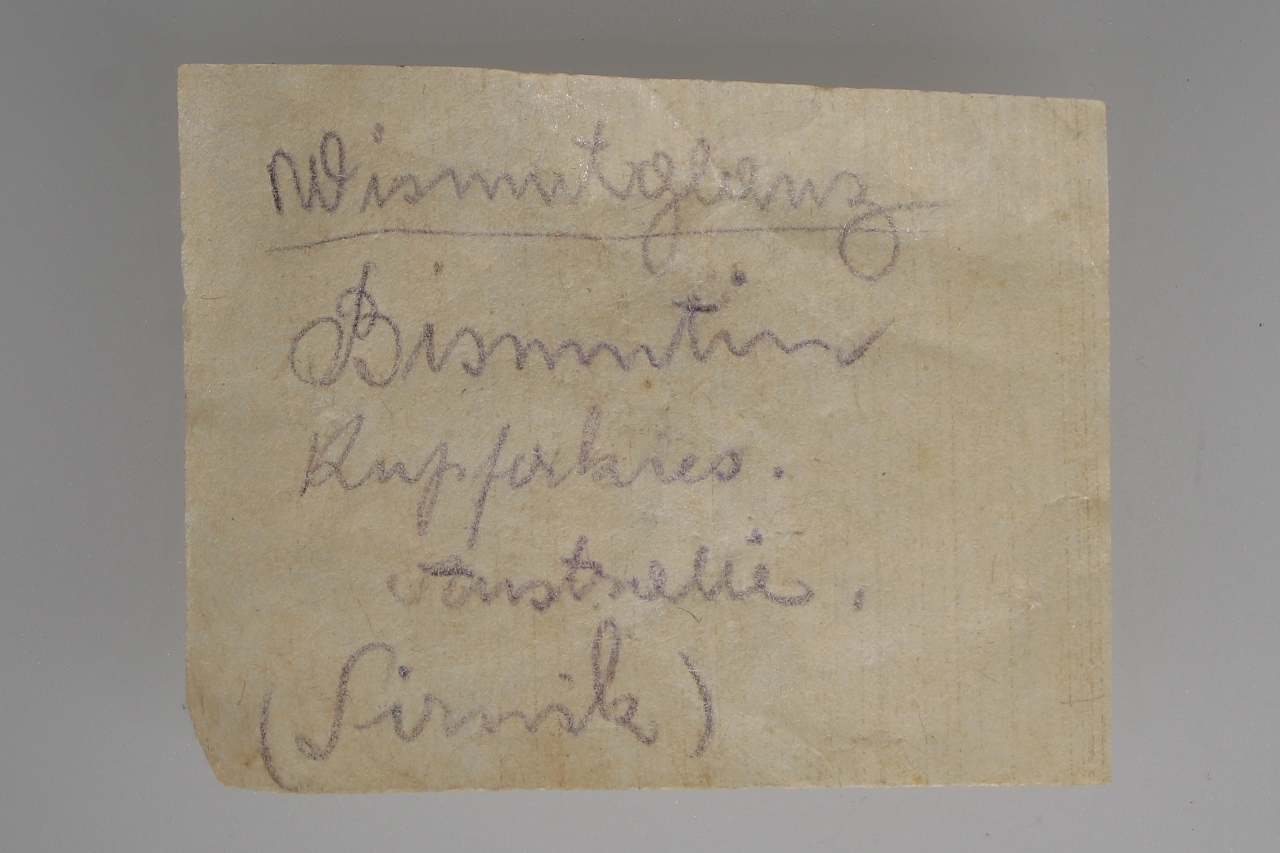 Wismutglanz
Bismutin
Kupferkies.
Australie.
(Sirnik)